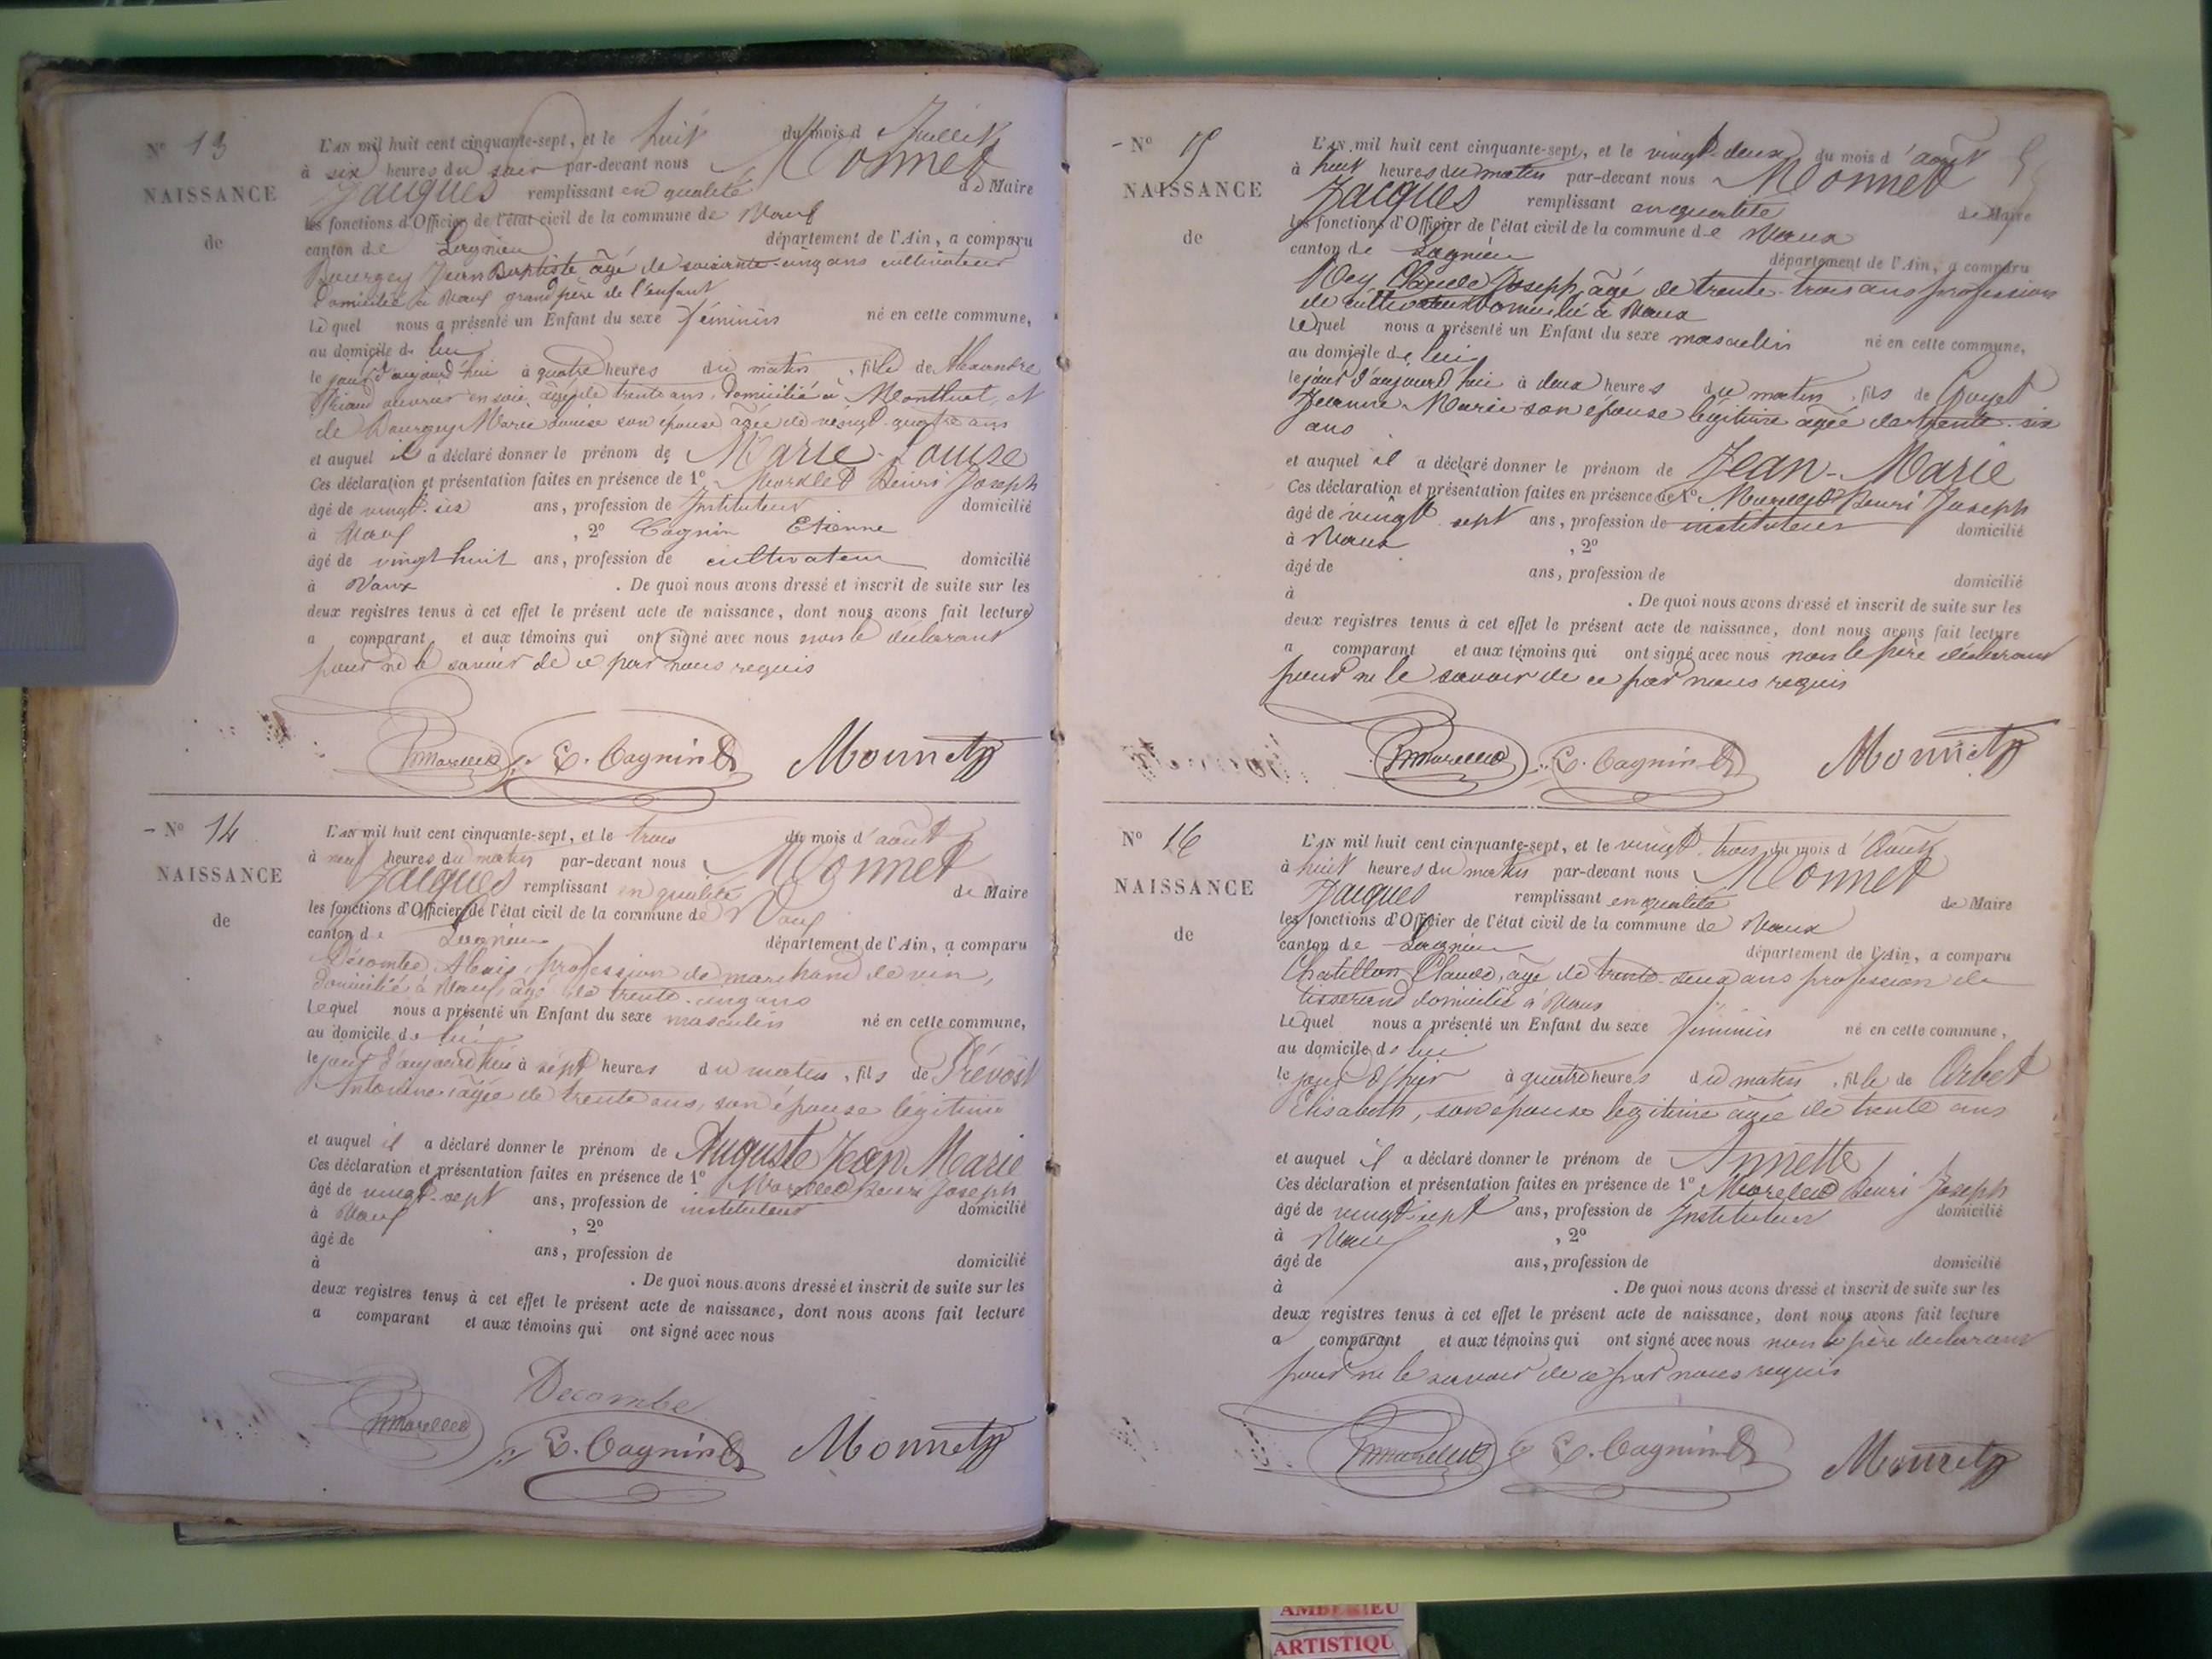 N° 13
NAISSANCE
de
L'AN mil huit cent cinquante-sept, et le huit du mois d Juillet
à six heures du soir par-devant nous Monnet
Jacques remplissant en qualité de Maire
les fonctions d'Officier de l'état civil de la commune de Vaux
canton de Lagnieu département de l'Ain, a comparu
Bourgey Jean Baptiste âgé de soixante-cinq ans cultivateur
Domicilié à Vaux grand père de l'enfant
Lequel nous a présenté un Enfant du sexe féminin né en cette commune,
au domicile de lui
le jour d'aujourd'hui à quatre heures du matin, fille de Alexandre
ouvrier en soie, âgé de trente ans, domicilié à Montluel, et
de Bourgey Marie Louise son épouse âgée de vingt-quatre ans
et auquel il a déclaré donner le prénom de Marie-Louise
Ces déclaration et présentation faites en présence de 1° Henri Joseph
âgé de vingt-six ans, profession de Instituteur domicilié
à Vaux, 2° Cagnin Etienne
âgé de vingt huit ans, profession de cultivateur domicilié
à Vaux. De quoi nous avons dressé et inscrit de suite sur les
deux registres tenus à cet effet le présent acte de naissance, dont nous avons fait lecture
a comparant et aux témoins qui ont signé avec nous non le déclarant
pour ne le savoir de ce par nous requis
E. Cagnin Monnet
N° 14
NAISSANCE
de
L'AN mil huit cent cinquante-sept, et le trois du mois d'août
à neuf heures du matin par-devant nous Monnet
Jacques remplissant en qualité de Maire
les fonctions d'Officier de l'état civil de la commune de Vaux
canton de Lagnieu département de l'Ain, a comparu
Décombe Alexis, profession de marchand de vin,
domicilié à Vaux, âgé de trente-cinq ans
Lequel nous a présenté un Enfant du sexe masculin né en cette commune,
au domicile de lui
le jour d'aujourd'hui à sept heures du matin, fils de Prévost
Antoinine âgée de trente ans, son épouse légitime
et auquel il a déclaré donner le prénom de Auguste Jean Marie
Ces déclaration et présentation faites en présence de 1° Henri Joseph
âgé de vingt-sept ans, profession de instituteur domicilié
à Vaux, 2°
âgé de ans, profession de
à domicilié
. De quoi nous avons dressé et inscrit de suite sur les
deux registres tenus à cet effet le présent acte de naissance, dont nous avons fait lecture
a comparant et aux témoins qui ont signé avec nous
Decombe
E. Cagnin Monnet
N° 15
NAISSANCE
de
L'AN mil huit cent cinquante-sept, et le vingt-deux du mois d'août
à huit heures du matin par-devant nous Monnet
Jacques remplissant en qualité de Maire
les fonctions d'Officier de l'état civil de la commune de Vaux
canton de Lagnieu département de l'Ain, a comparu
Claude Joseph, âgé de trente-trois ans profession
de cultivateur Domicilié à Vaux
Lequel nous a présenté un Enfant du sexe masculin né en cette commune,
au domicile de lui
le jour d'aujourd'hui à deux heures du matin, fils de Goyet
Jeanne Marie son épouse légitime âgée de trente-six
ans
et auquel il a déclaré donner le prénom de Jean-Marie
Ces déclaration et présentation faites en présence de 1° Henri Joseph
âgé de vingt sept ans, profession de instituteur domicilié
à Vaux, 2°
âgé de ans, profession de domicilié
à . De quoi nous avons dressé et inscrit de suite sur les
deux registres tenus à cet effet le présent acte de naissance, dont nous avons fait lecture
a comparant et aux témoins qui ont signé avec nous non le père déclarant
pour ne le savoir de ce par nous requis
E. Cagnin Monnet
N° 16
NAISSANCE
de
L'AN mil huit cent cinquante-sept, et le vingt-trois du mois d'Août
à huit heures du matin par-devant nous Monnet
Jacques remplissant en qualité de Maire
les fonctions d'Officier de l'état civil de la commune de Vaux
canton de Lagnieu département de l'Ain, a comparu
Chatillon Claude, âgé de trente-deux ans profession de
tisserand domicilié à Vaux
Lequel nous a présenté un Enfant du sexe féminin né en cette commune,
au domicile de lui
le jour d'hier à quatre heures du matin, fille de Orbet
Elisabeth, son épouse légitime âgée de trente ans
et auquel il a déclaré donner le prénom de Annette
Ces déclaration et présentation faites en présence de 1° Henri Joseph
âgé de vingt-sept ans, profession de Instituteur domicilié
à Vaux, 2°
âgé de ans, profession de domicilié
à . De quoi nous avons dressé et inscrit de suite sur les
deux registres tenus à cet effet le présent acte de naissance, dont nous avons fait lecture
a comparant et aux témoins qui ont signé avec nous non le père déclarant
pour ne le savoir de ce par nous requis
E. Cagnin Monnet
AMBERIEU
ARTISTIQU